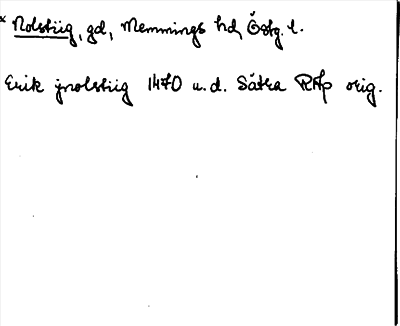 * Nolstiig, gd, Memmings hd, Östg. l.
Erik jnolstiig 1470 u.d. Sätra RAp orig.